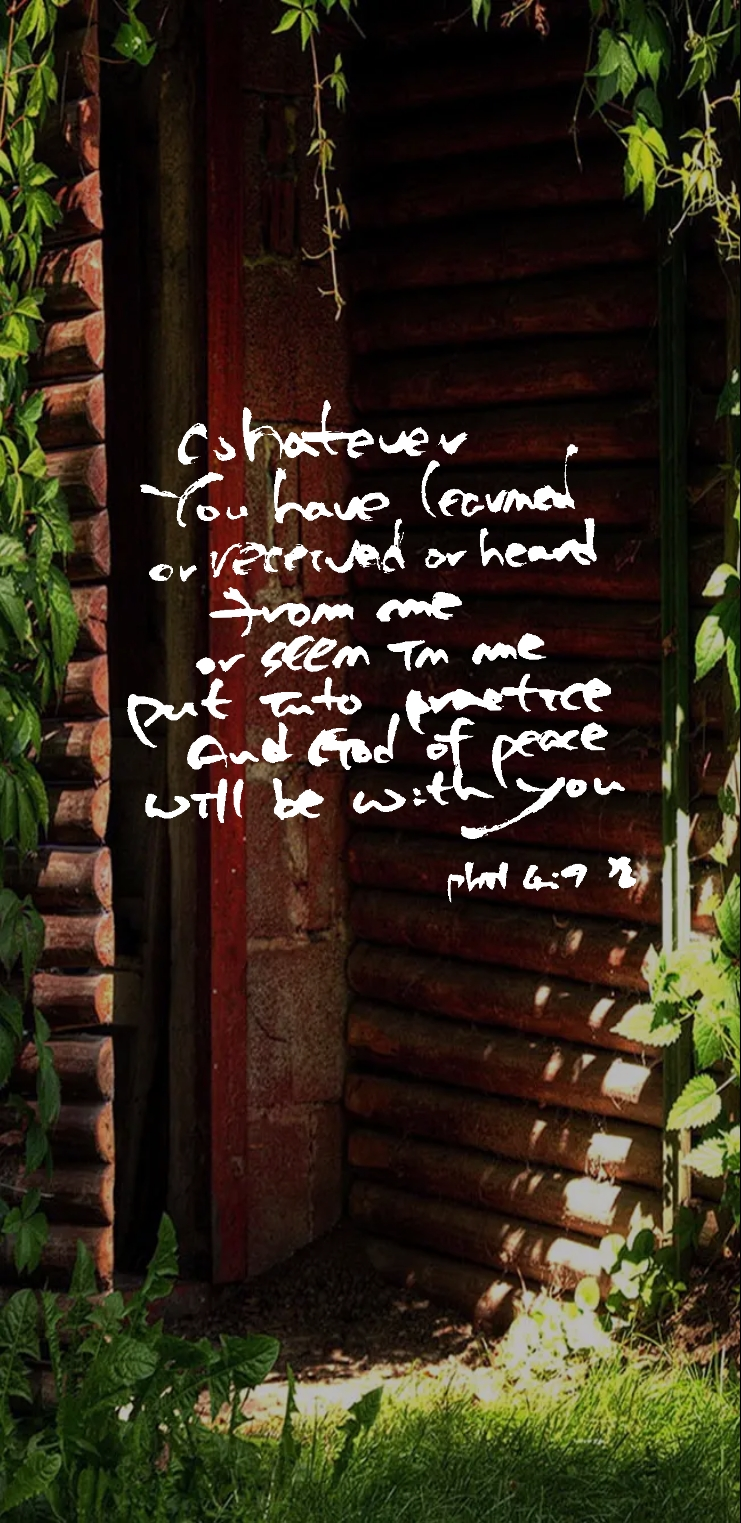 Whatever
You have learned
or received or heard
from me
or seen in me
put into practice
And God of peace
will be with you
phil 4:9